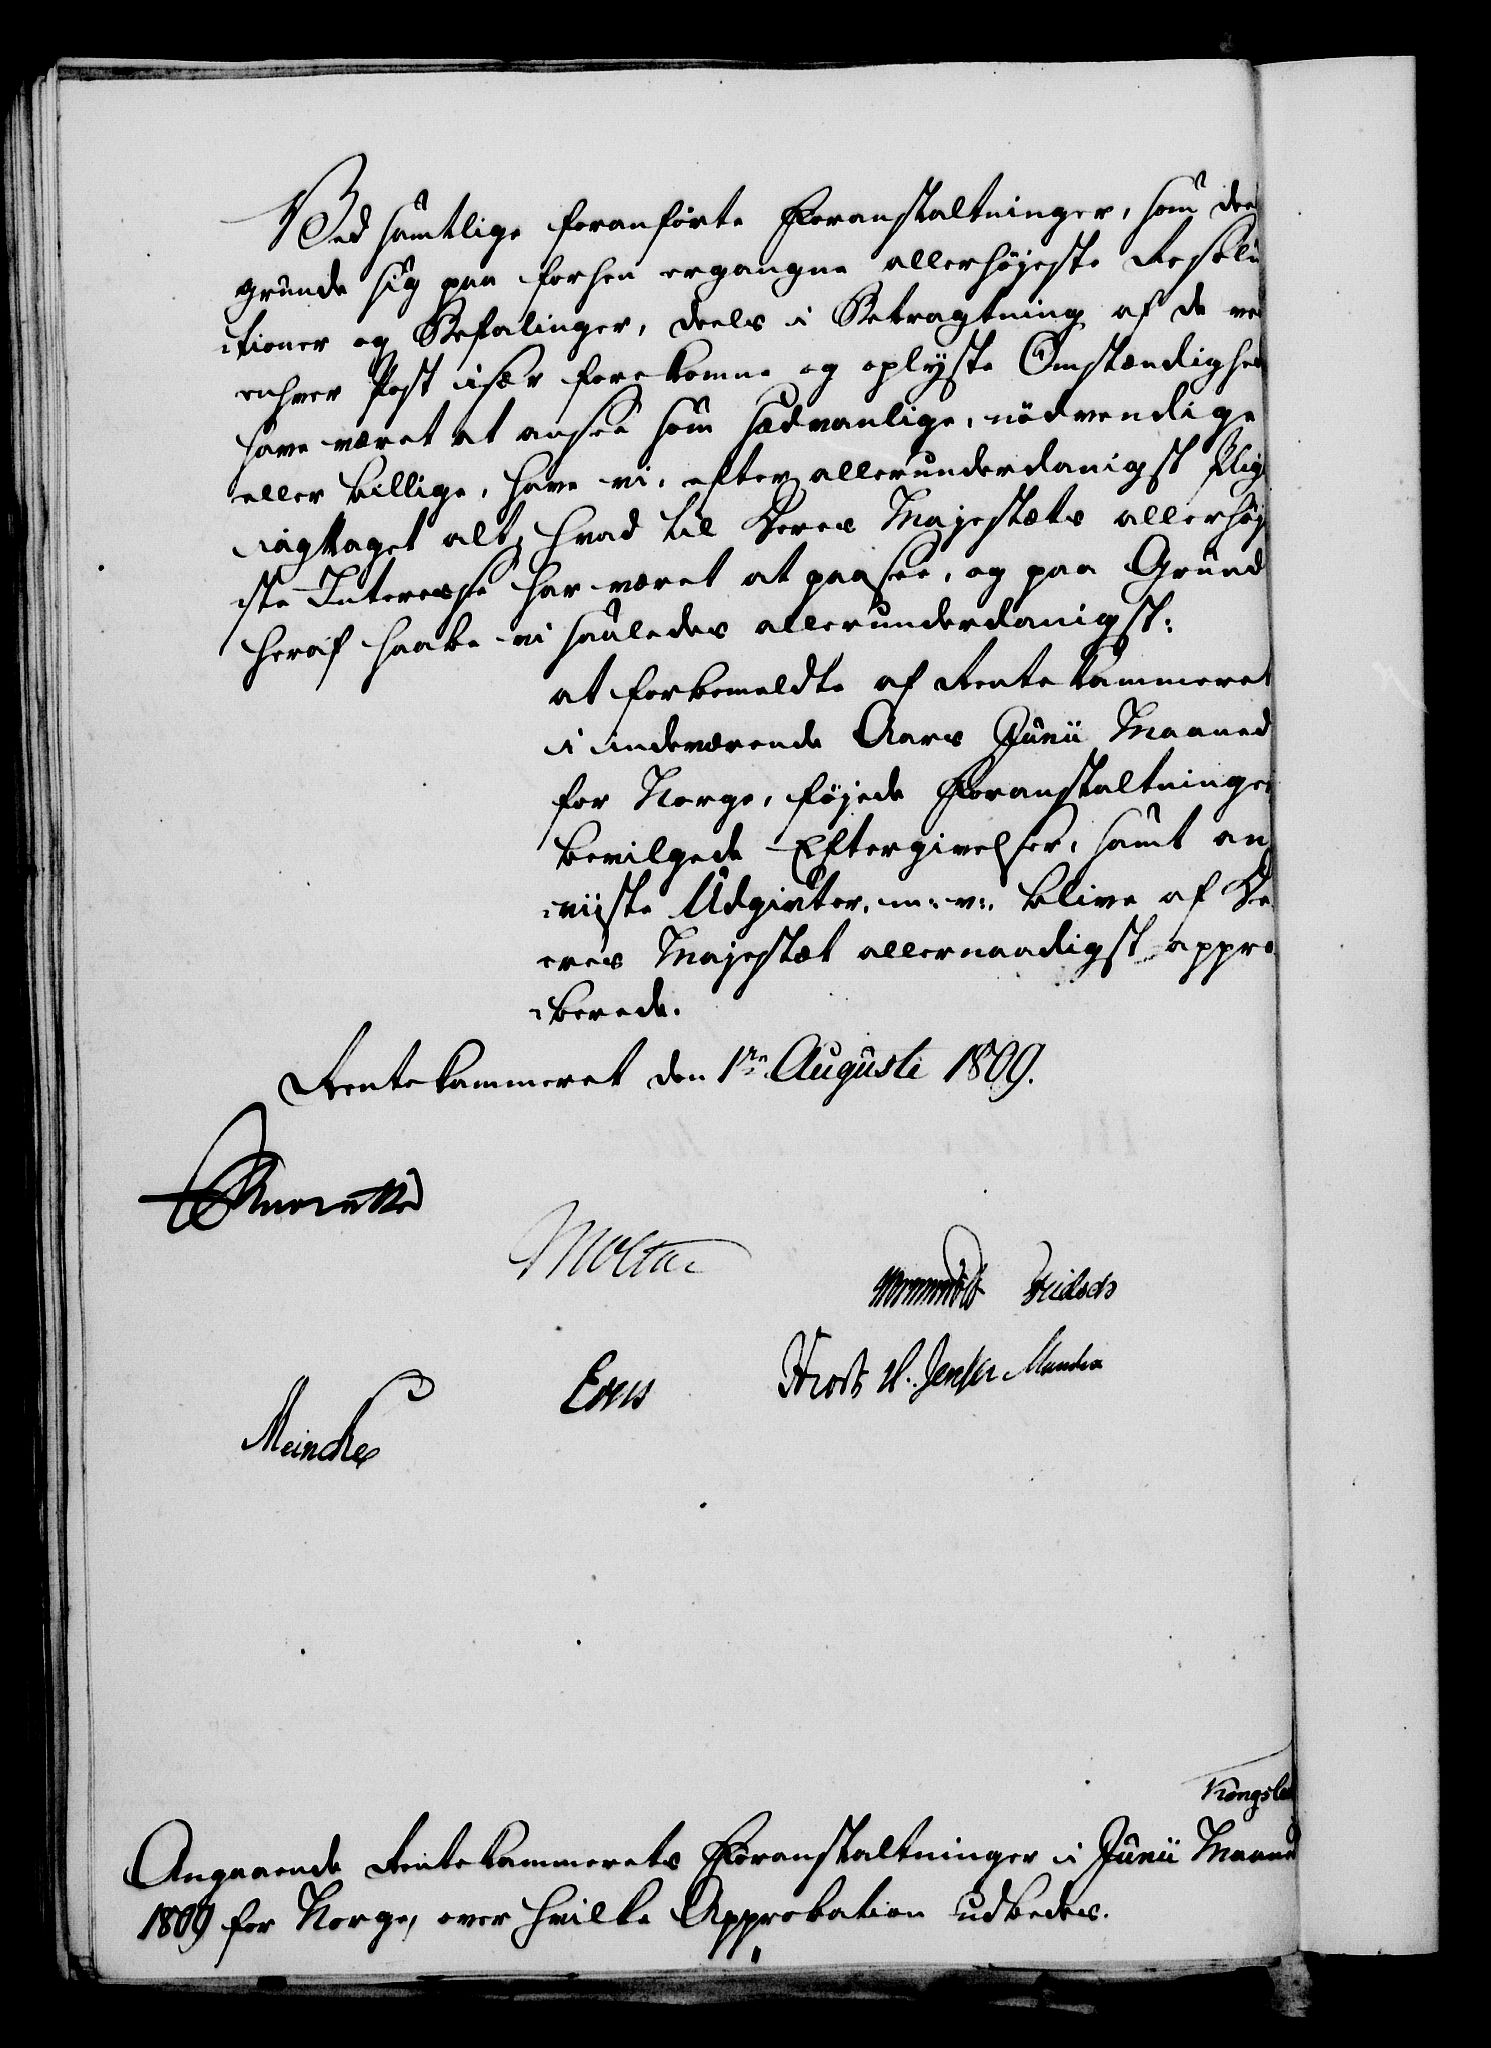 Ved samtlige foranførte Foranstaltninger, som dee
grunde sig paa forhen ergangne allerhøjeste Resolu
tioner og Befalinger, deels i Betragtning af de ved
enhver Post især forekomne og oplyste Omstændighed
have været at ansee som sædvanlige, nödvendige
eller billige, have vi, efter allerunderdanigst Pligt
iagttaget alt, hvad til Deres Majestæts allerhøj
ste Interesse har været at paasee, og paa Grund
heraf haabe vi saaledes allerunderdanigst:
at forbemeldte af Rentekammeret
i indeværende Aars Junii Maaned
for Norge, føjede Foranstaltninger
bevilgede Eftergivelser, samt an
viiste Udgivter, m: v:, blive af De
eres Majestæt allernaadigst appro
berede.
Rentekammeret den 1ste Augusti 1809.
Moltke
Meincke
Kongsl
Angaaende Rentekammerets Foranstaltninger i Junii Maaned
1809 for Norge, over hvilke Approbation udbedes.